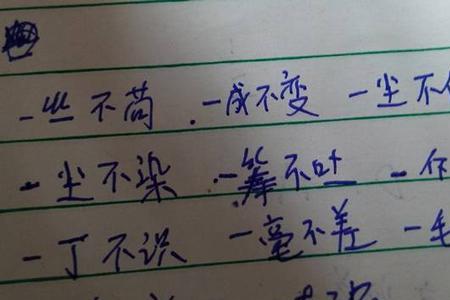 一丝不苟 一成不变 一尘不
一尘不染 一筹不吐 一
一丁不识 一毫不差 一毛